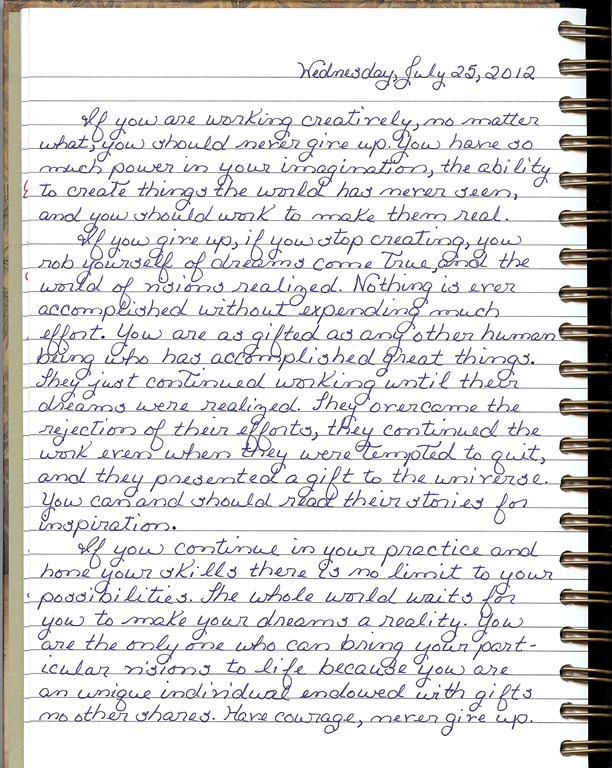 Wednesday, July 25, 2012
If you are working creatively, no matter
what, you should never give up. You have so
much power in your imagination, the ability
to create things the world has never seen,
and you should work to make them real.
If you give up, if you stop creating, you
rob yourself of dreams come true, and the
world of visions realized. Nothing is ever
accomplished without expending much
effort. You are as gifted as any other human
being who has accomplished great things.
They just continued working until their
dreams were realized. They overcame the
rejection of their efforts, they continued the
work even when they were tempted to quit,
and they presented a gift to the universe.
You can and should read their stories for
inspiration.
If you continue in your practice and
hone your skills there is no limit to your
possibilities. The whole world waits for
you to make your dreams a reality. You
are the only one who can bring your part-
icular visions to life because you are
an unique individual endowed with gifts
no other shares. Have courage, never give up.